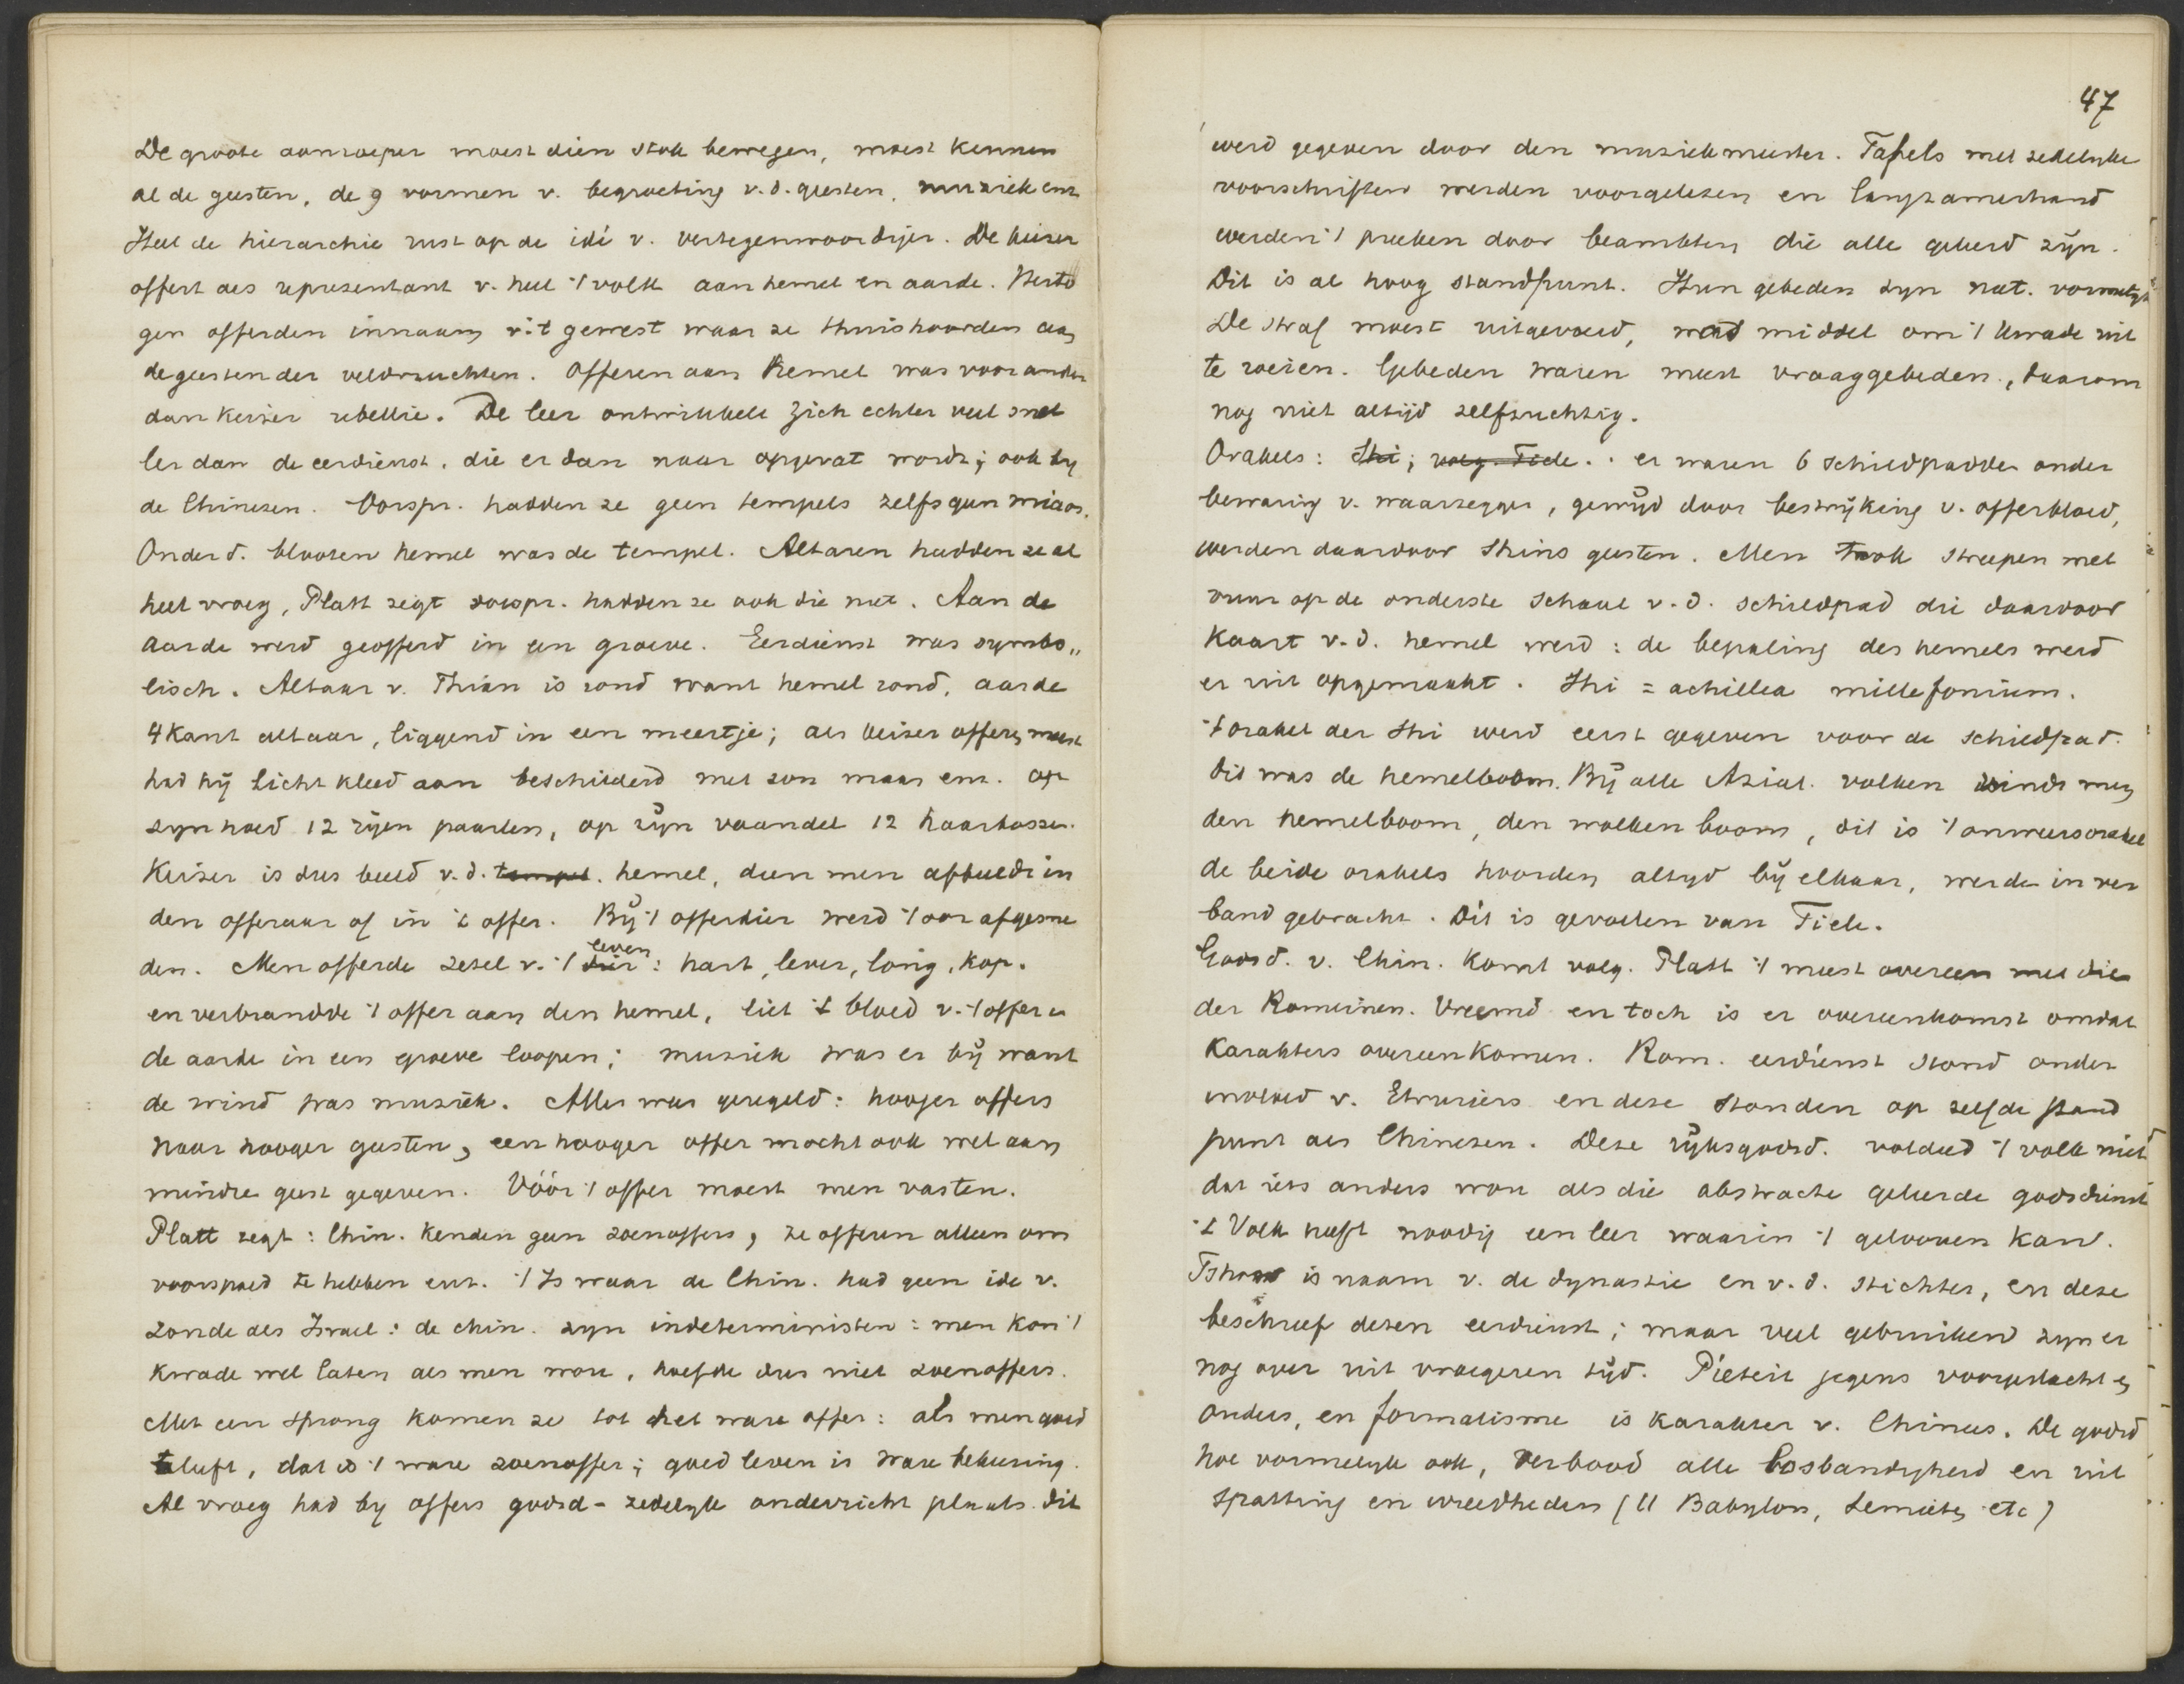 De groote aanroeper moest dien stok bewegen, moest kennen
al de geesten, de 9 vormen v. begroeting v. d. geesten, muziek enz
Heel de hierarchie rust op de idé v. vertegenwoordiger. De keiser
offert als representant v. heel 't volk aan hemel en aarde. Herto
gen offerden in naam v. 't gewest waar ze thuishoorden aan
de geesten der veldvruchten. Offeren aan Hemel was voor ander
dan keiser rebellie. De leer ontwikkelt zich echter veel snel
ler dan de eerdienst, die er dan naar opgevat wordt; ook by
de Chinesen. Oorspr. hadden ze geen tempels zelfs geen miaos.
Onder d. blooten hemel was de tempel. Altaren hadden ze al
heel vroeg, Platt zegt oorspr. hadden ze ook die niet. Aan de
aarde werd geofferd in een groeve. Eerdienst was symbo„
lisch. Altaar v. Thian is rond want hemel rond, aarde
4kant altaar, liggend in een meertje; als keiser offeren moest
had hij licht kleed aan beschilderd met zon maan enz. op
zyn hoed 12 rijen paarlen, op zijn vaandel 12 haarbossen.
Keiser is dus beeld v. d. tempel. hemel, dien men afbeeldt in
den offeraar of in 't offer. Bij 't offerdier werd 't oor afgesne
den. Men offerde zetel v. 't dier leven: hart, lever, long, kop.
en verbrandde 't offer aan den hemel, liet 't bloed v. 't offer a
de aarde in een groeve loopen; muziek was er bij want
de wind was muziek. Alles was geregeld: hooger offers
naar hooger geesten, een hooger offer mocht ook wel aan
mindre geest gegeven. Vóór 't offer moest men vasten.
Platt zegt: Chin. kenden geen zoenoffers, ze offeren alleen om
voorspoed te hebben enz. 't Is waar de Chin. had geen ide v.
zonde als Israel: de chin. zyn indeterministen: men kon 't
kwade wel laten als men wou, hoefde dus niet zoenoffers.
Met een sprong komen ze tot het ware offer: als men goed
leeft, dat is 't ware zoenoffer; goed leven is ware bekeering.
Al vroeg had by offers godsd-zedelyk onderricht plaats. Dit
47
werd gegeven door den muziekmeester. Tafels met zedelyke
voorschriften werden voorgelezen en langzamerhand
werden 't preeken door beambten die alle geleerd zijn.
Dit is al hoog standpunt. Hun gebeden zyn nat. vormelyk
De straf moest uitgevoerd, werd middel om 't kwade uit
te roeien. Gebeden waren meest vraaggebeden, daarom
nog niet altijd zelfzuchtig.
Orakels: Shi; volg. Tiele. er waren 6 schildpadden onder
bewaring v. waarzegger, gewijd door bestrijking v. offerbloed,
werden daardoor Shins geesten. Men trok streepen met
vuur op de onderste schaal v. d. schildpad die daardoor
kaart v. d. hemel werd: de bepaling des hemels werd
er uit opgemaakt. Shi = achillea millefonium.
't orakel der Shi werd eerst gegeven voor de schildpad.
dit was de hemelboom. Bij alle Aziat. volken vindt men
den hemelboom, den wolkenboom, dit is 't onweersorakel
de beide orakels hoorden altyd bij elkaar, werden in ver
band gebracht. Dit is gevoelen van Tiele.
Godsd. v. Chin. komt volg. Platt 't meest overeen met die
der Romeinen. Vreemd en toch is er overeenkomst omdat
karakters overeenkomen. Rom. eerdienst stond onder
invloed v. Etruriers en deze stonden op zelfde stand
punt als Chinesen. Deze rijksgodsd. voldeed 't volk niet
dat iets anders wou als die abstracte geleerde godsdienst
't Volk heeft noodig een leer waarin 't gelooven kan.
Tshow is naam v. de dynastie en v. d. stichter, en deze
beschreef dezen eerdienst; maar veel gebruiken zyn er
nog over uit vroegeren tijd. Piëteit jegens voorgeslacht en
ouders, en formalisme is karakter v. Chinees. De godsd
hoe vormelyk ook, verbood alle losbandigheid en uit
spatting en wreedheden (ll Babylon, Semieten etc)